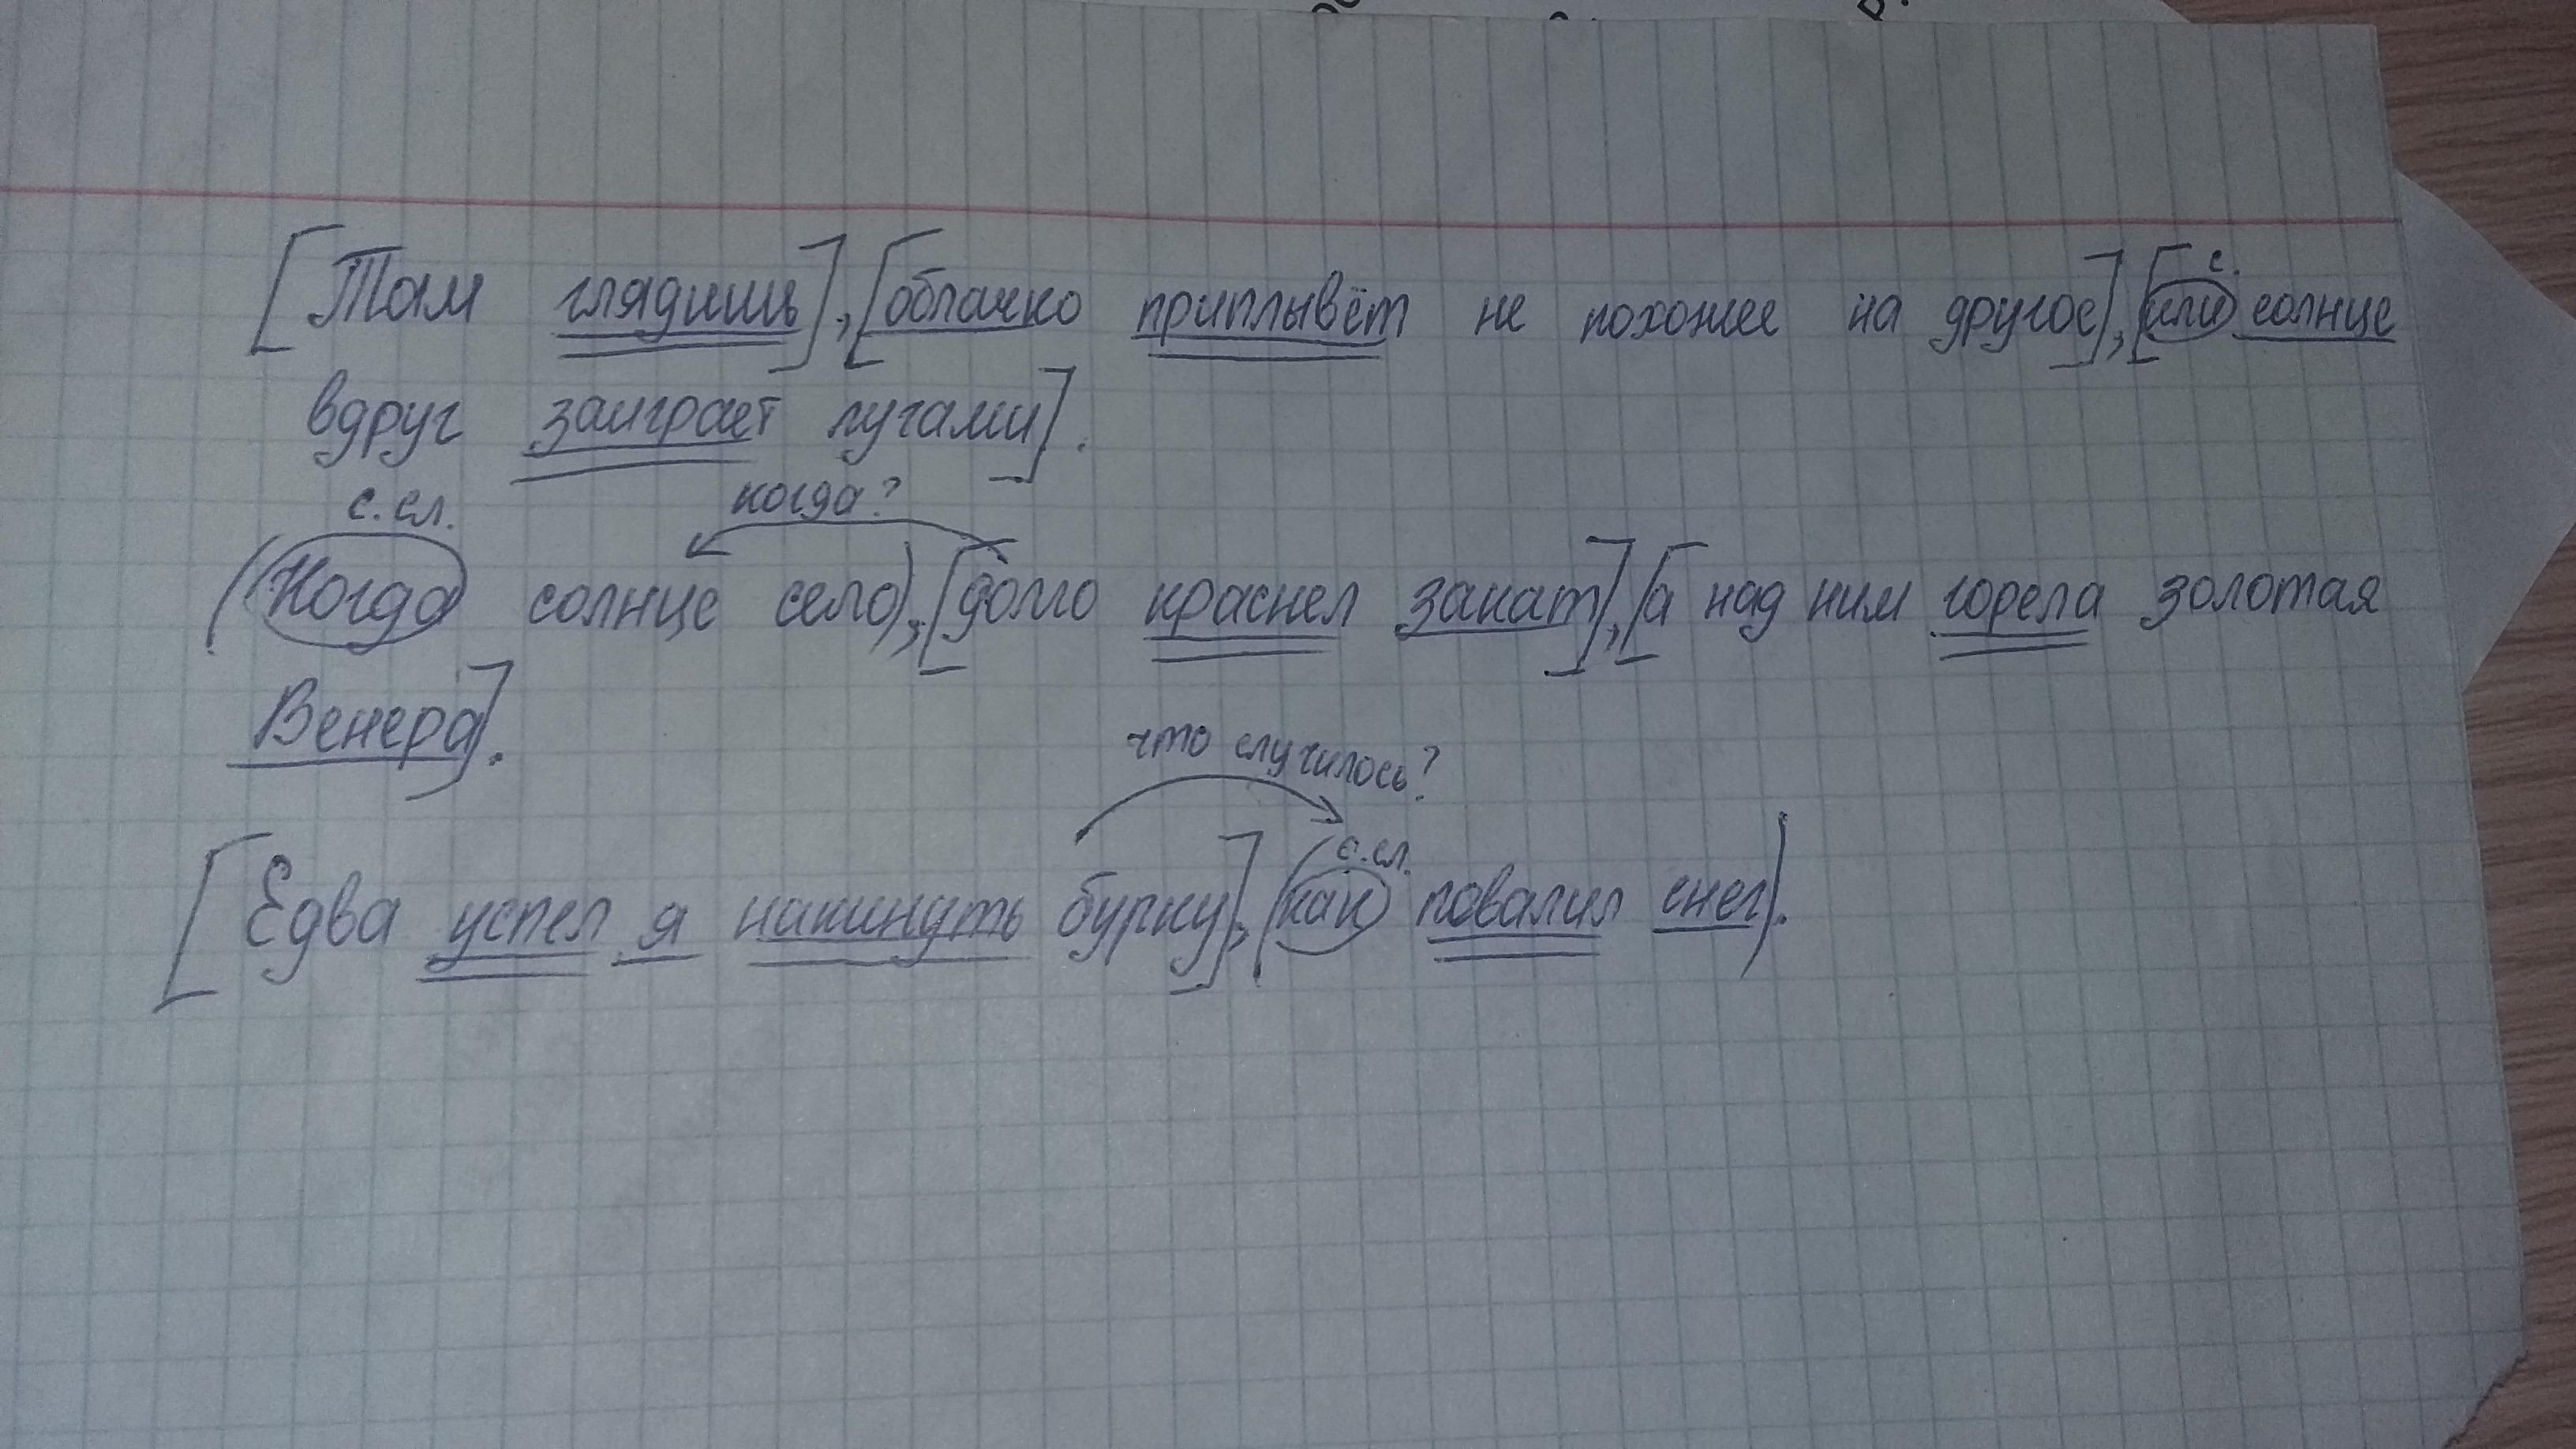 с.
[Там глядишь], [облачко приплывёт не похожее на другое], [или солнце
вдруг заиграет лучами].
с. сл. когда?
(Когда солнце село), [долго краснел закат], [а над ним горела золотая
Венера].
что случилось?
с. сл.
[Едва успел я накинуть бурку], (как повалил снег).